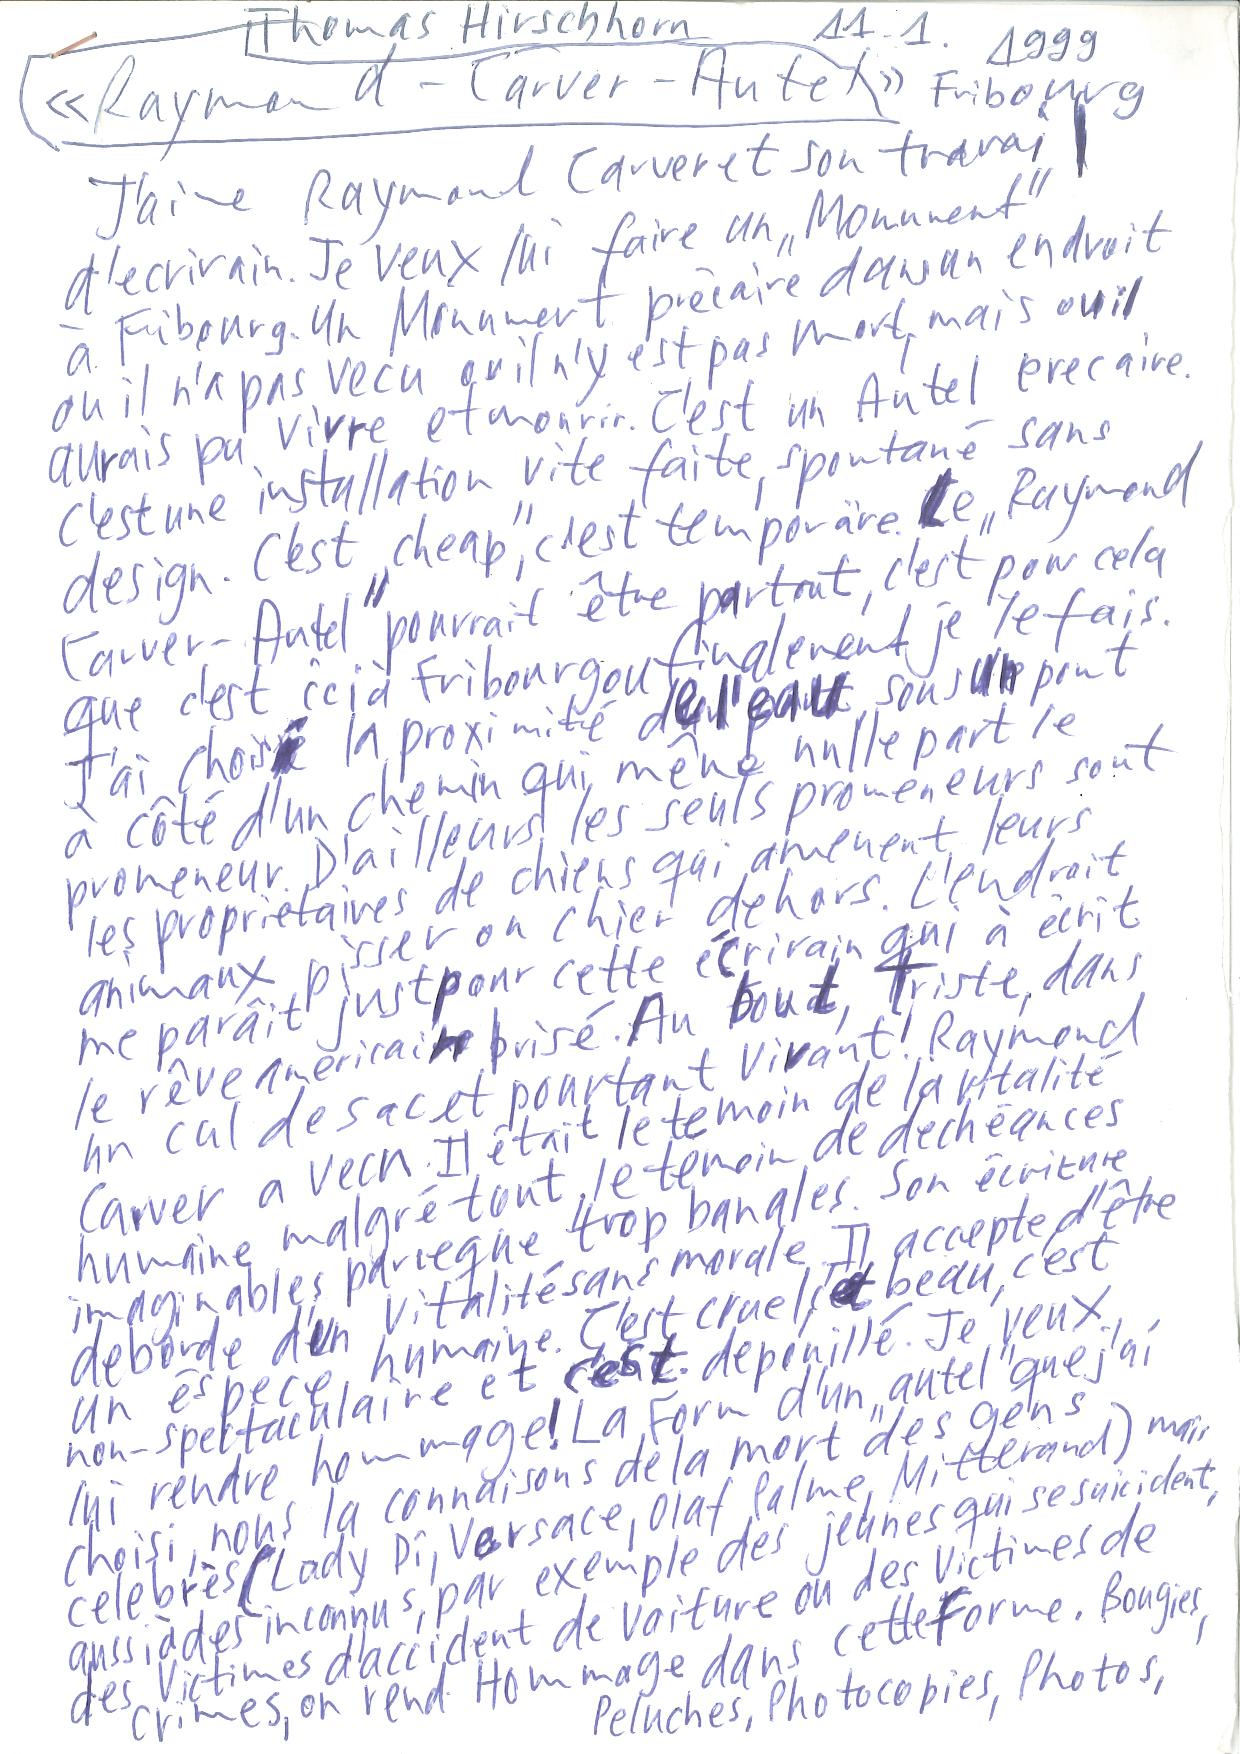 Thomas Hirschhorn 11.1. 1999
«Raymond-Carver-Autel» Fribourg
J'aime Raymond Carver et son travail
d'ecrivain. Je veux lui faire un „Monument"
à Fribourg. Un Monument précaire dans un endroit
ou il n'a pas vecu ou il n'y est pas mort, mais ou il
aurais pu vivre et mourir. C'est un Autel precaire.
C'est une installation vite faite, spontané sans
design. C'est „cheap", c'est temporäre. Le „Raymond
Carver-Autel" pourrait être partout, c'est pour cela
que c'est ici à Fribourg ou finalement je le fais.
J'ai choisi la proximité de l'eau, sous un pont
à côté d'un chemin qui mène nulle part le
promeneur. D'ailleurs les seuls promeneurs sont
les proprietaires de chiens qui amenent leurs
animaux pisser ou chier dehors. L'endroit
me paraît just pour cette écrivain qui à écrit
le rêve americain brisé. Au bout, triste, dans
un cul de sac et pourtant vivant! Raymond
Carver a vecu. Il était le temoin de la vitalité
humaine malgré tout, le temoin de dechéances
imaginables parceque trop banales. Son écriture
deborde d'un vitalité sans morale. Il accepte d'être
un éspece humaine. C'est cruel, et beau, c'est
non-spectaculaire et c'est depouillé. Je veux
lui rendre hommage! La Form d'un „autel" que j'ai
choisi, nous la connaisons de la mort des gens
celebrès (Lady Di, Versace, Olaf Palme, Mitterand) mais
aussi à des inconnus, par exemple des jeunes qui se suicident,
des Victimes d'accident de Voiture ou des Victimes de
crimes, on rend Hommage dans cette Forme. Bougies,
Peluches, Photocopies, Photos,